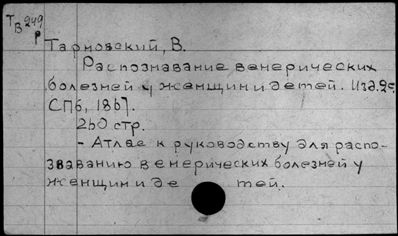 Т 249
В р
Тарновский, В.
Распознавание венерических
болезней у женщин и детей. Изд. 2е
СПб, 1867.
260 стр.
- Атлас к руководству для распо-
званию венерических болезней у
женщин и де тей.